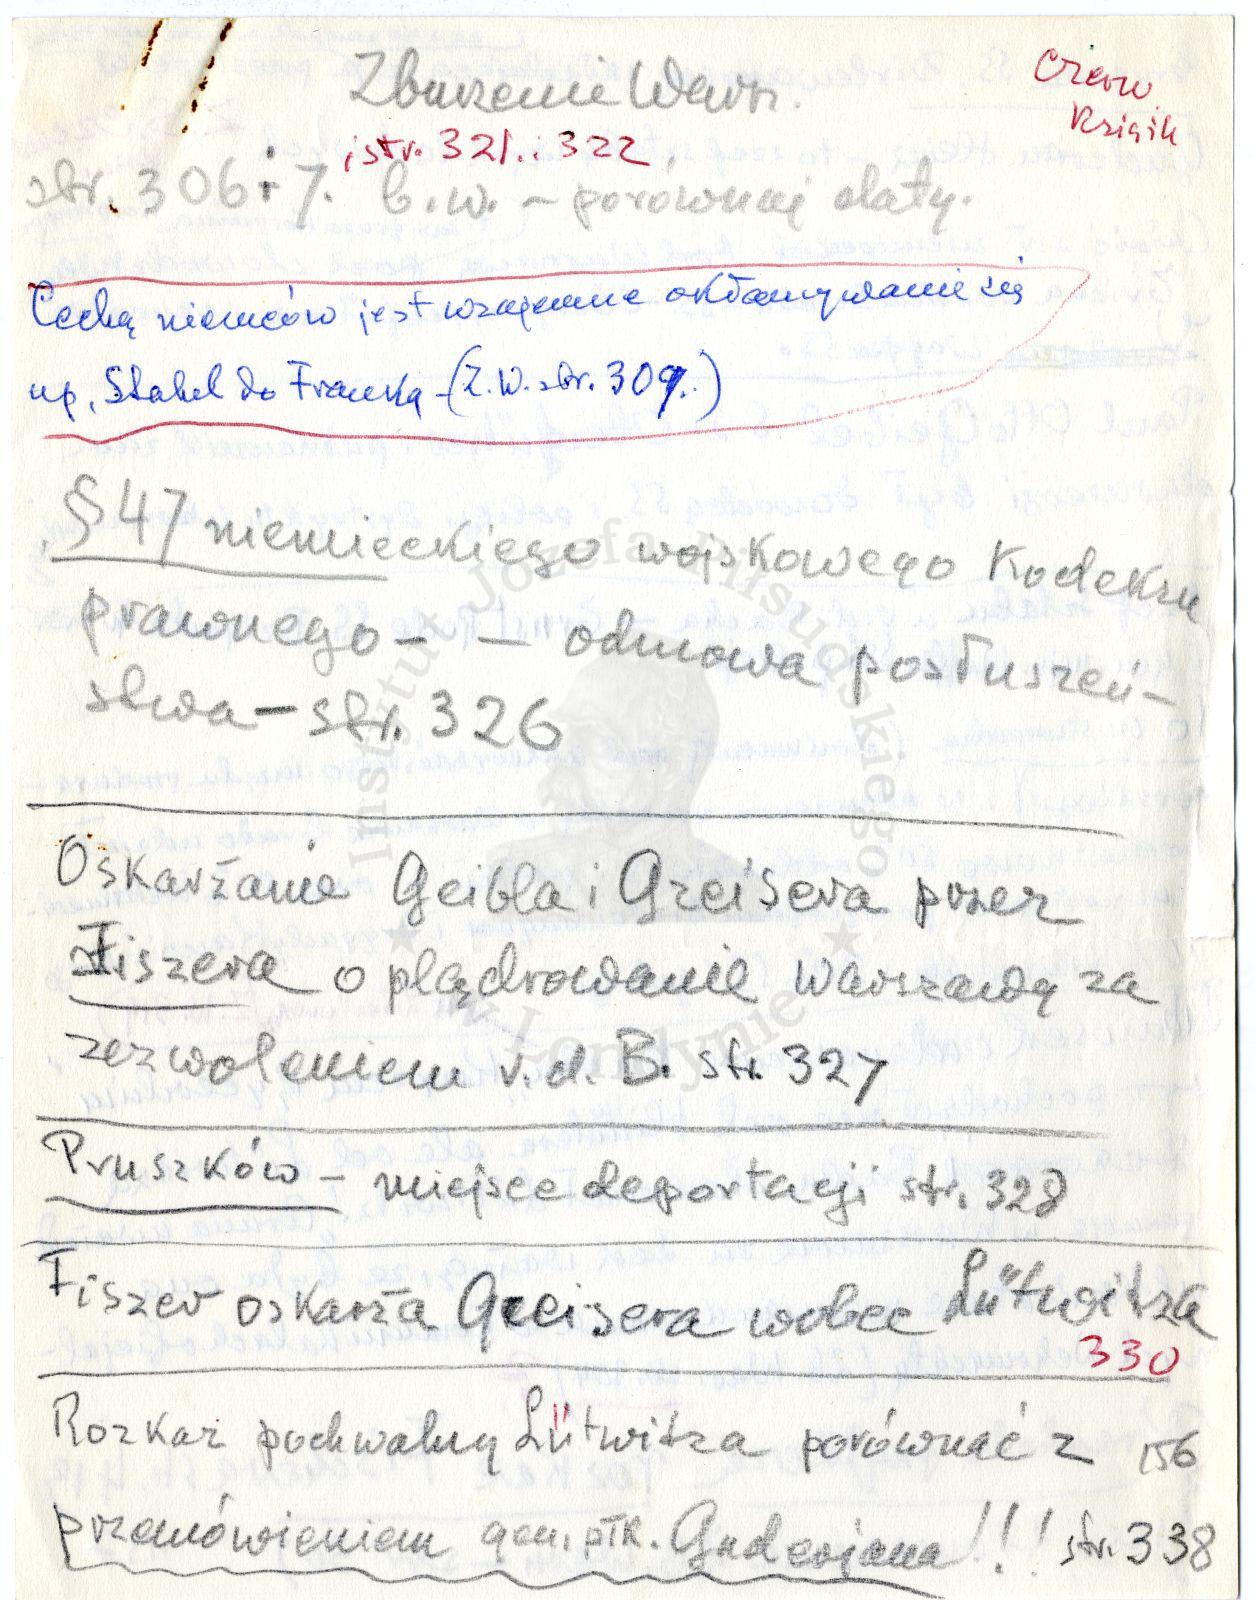 Zburzenie Warsz.
Czerw
Książk
i str. 321. i 322
str. 306 i 7. b.w. – porównaj daty.
Cechą niemców jest wzajemne okłamywanie się
np. Stahel do Franka – (Z.W. str. 309.)
§ 47 niemieckiego wojskowego Kodeksu
prawnego – – odmowa posłuszeń-
stwa – str. 326
Oskarżanie Geibla i Greisera przez
Fiszera o plądrowanie Warszawy za
zezwoleniem v.d. B. str. 327
Pruszków – miejsce deportacji str. 328
Fiszer oskarża Greisera wobec Lütwitza
330
Rozkaz pochwalny Lütwitza porównać z 156
przemówieniem gen. płk. Guderjana!!! str. 338
Instytut Józefa Piłsudskiego
w Londynie